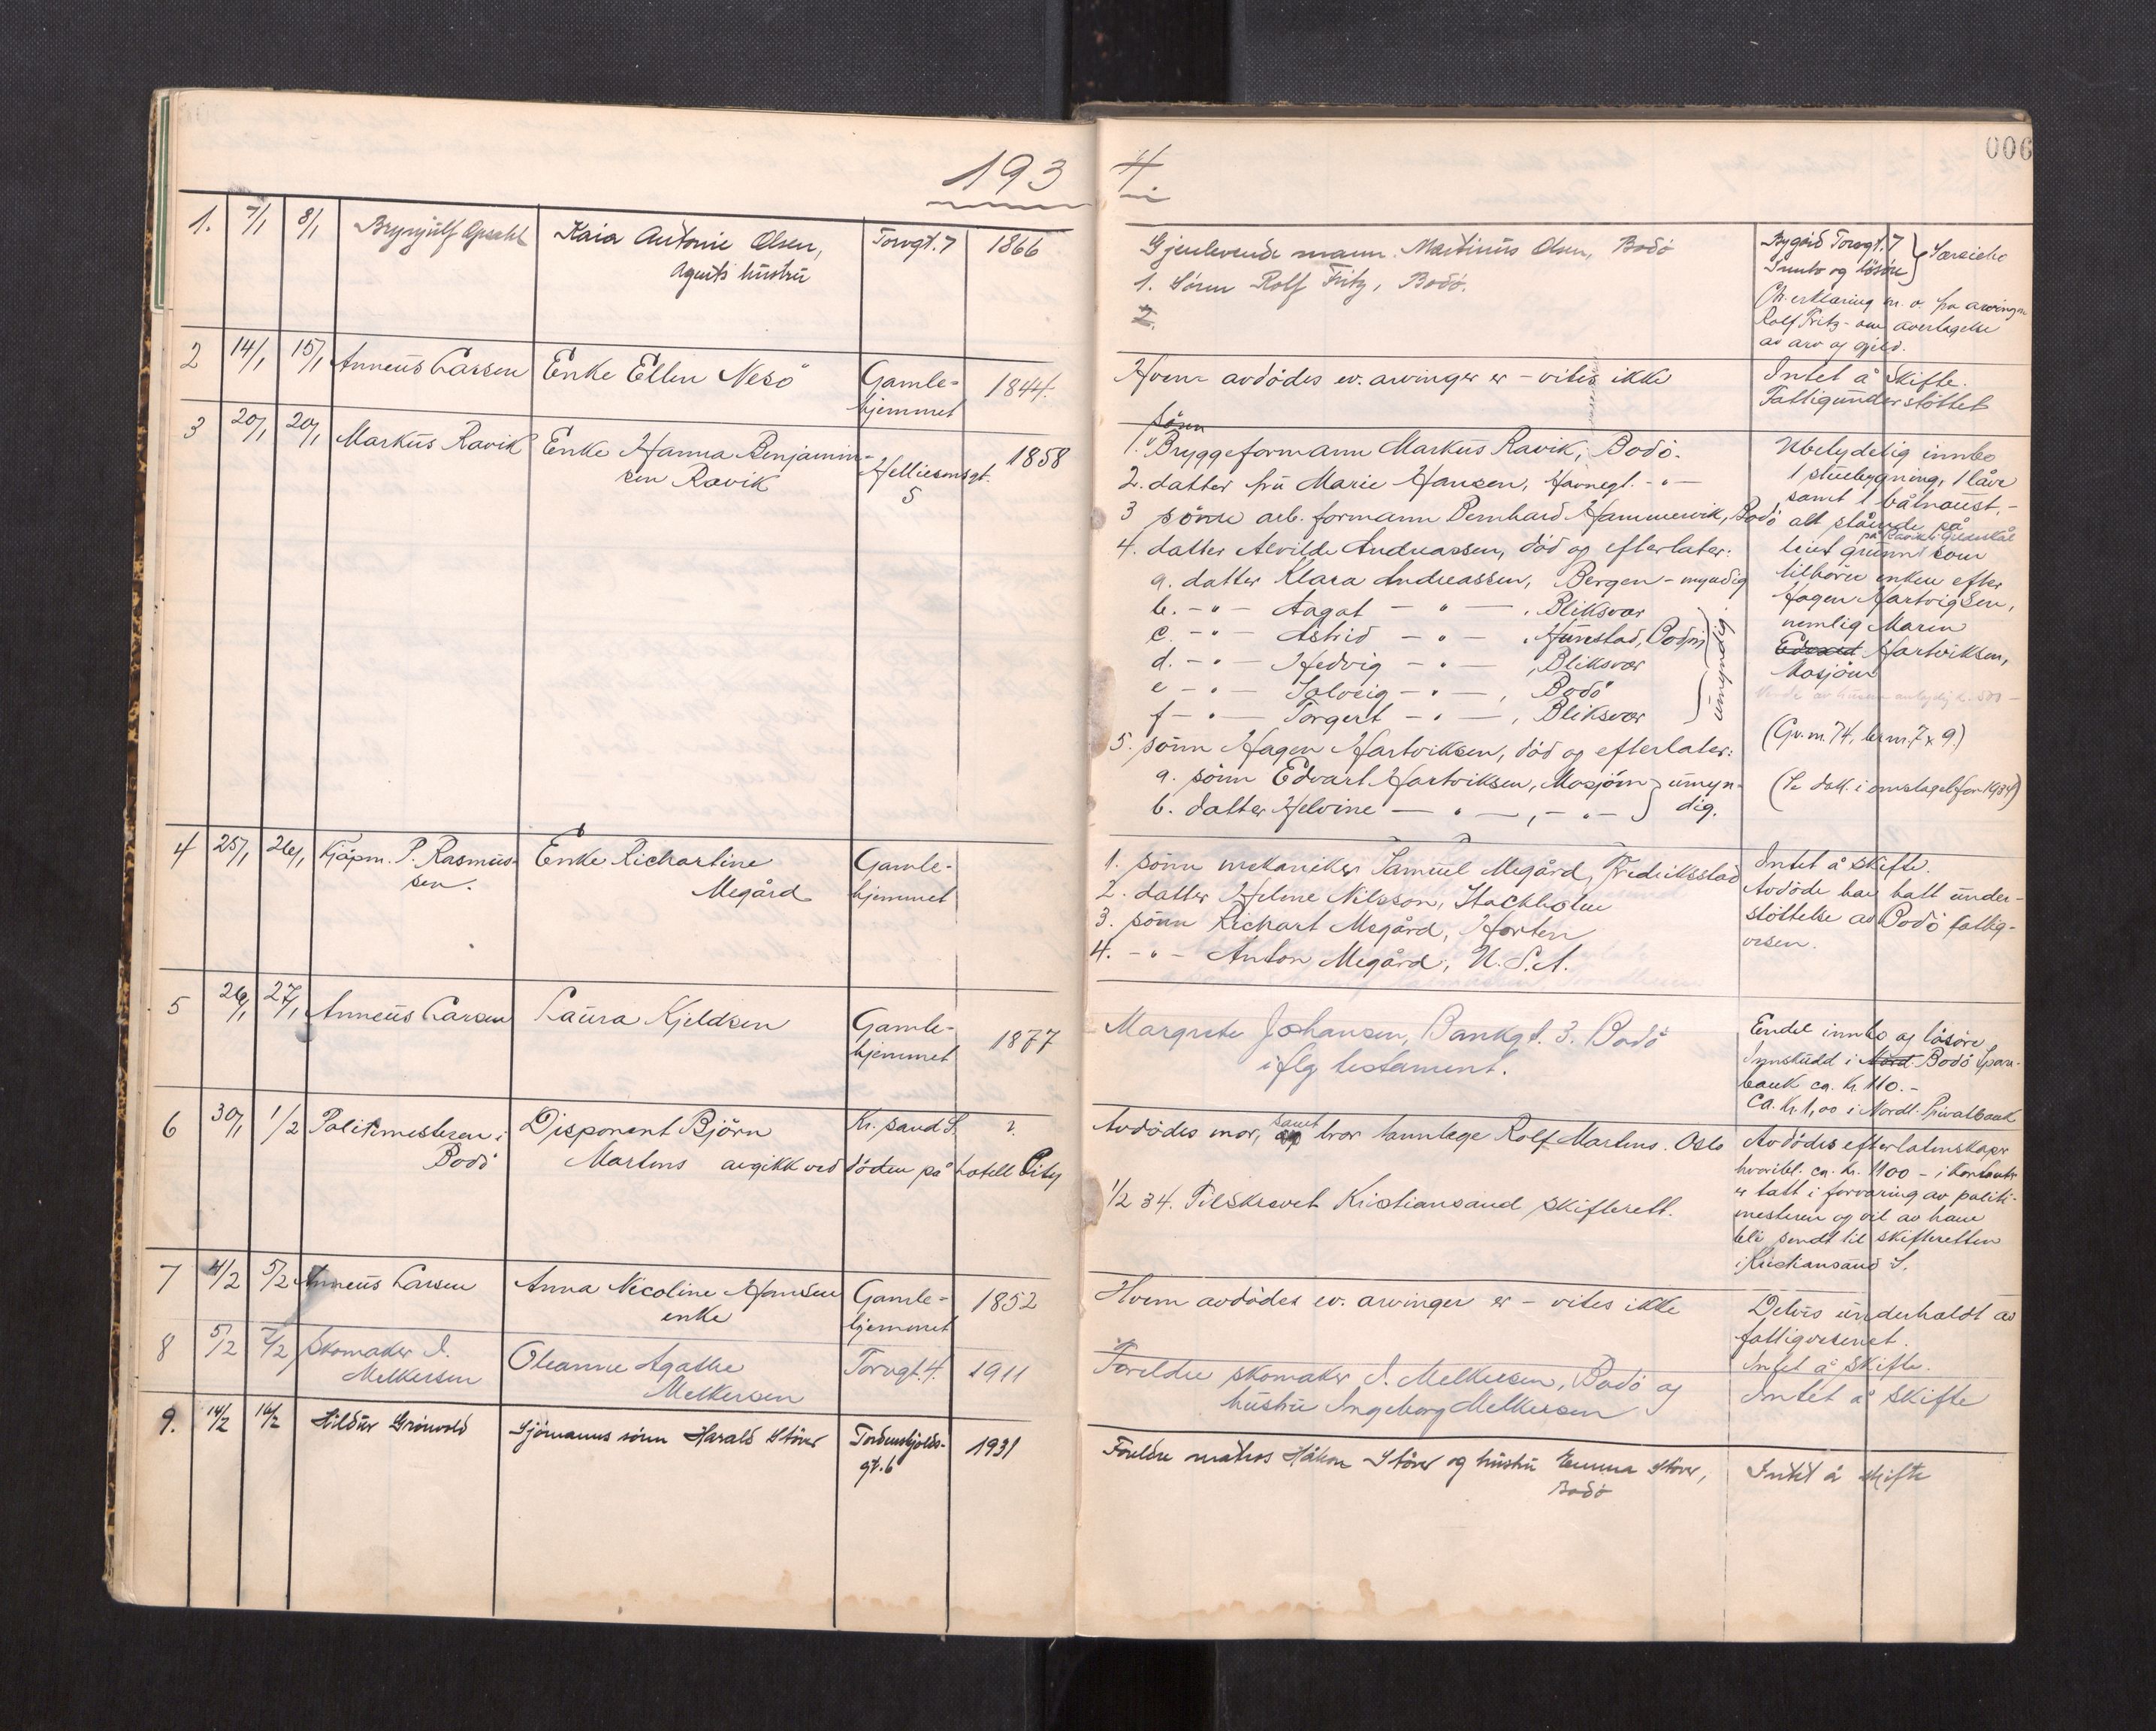 193
4
006
1. 7/1 8/1 Brynjulf Opsahl Kaia Antonie Olsen, Torvgt. 7 1866
Agents hustru
Gjenlevende mann Martinus Olsen, Bodö
1. Sönn Rolf Fritz, Bodö.
2.
Bygård Torvgt. 7
Innbo og lösöre } Særeie
erklæring m. v. fra arvingen
Rolf Fritz om overtagelse
av arv og gjeld.
2 14/1 15/1 Anneus Larsen Enke Ellen Nesö Gamle- 1844.
hjemmet
Hvem avdödes ev. arvinger er - vites ikke
Intet å skifte.
Fattigunderstöttet
3 20/1 20/1 Markus Ravik Enke Hanna Benjamin- Helliesensgt. 1858
sen Ravik 5
sönn
1. Bryggeformann Markus Ravik, Bodö.
2. datter fru Marie Hansen, Havnegt. - " -
3 sönn arb. formann Bernhard Hammervik, Bodö
4. datter Alvilde Andreassen, död og efterlater:
a. datter Klara Andreassen, Bergen - myndig
b. - " - Aagot - " - , Bliksvær
c. - " - Astrid - " - , Hunstad, Bodin
d. - " - Hedvig - " - , Bliksvær
e - " - Solveig - " - , Bodö
f - " - Torgert - " - , Bliksvær
umyndig.
5. sönn Hagen Hartviksen, död og efterlater:
a. sönn Edvart Hartviksen, Mosjöen } umyn-
b. datter Helvine - " - , - " - } dig.
Ubetydelig innbo
1 stuebygning, 1 låve
samt 1 båtnaust, -
alt stående på
på Ravik i Gildeskål
leiet grunn som
tilhörer enken efter
Hagen Hartvigsen,
nemlig Maren
Edvard Hartviksen,
Mosjöen
(Gv.m. 74, br.m. 7 x 9.)
(Se dok. i omslaget for 1934)
4 25/1 26/1 Kjöpm. P. Rasmus- Enke Richartine Gamle-
sen. Megård hjemmet
1. sönn mekaniker Samuel Megård, Fredriksstad
2. datter Helene Nilsson, Stockholm
3. sönn Richart Megård, Horten
4. - " - Anton Megård, U.S.A.
Intet å skifte.
Avdöde har hatt under-
stöttelse av Bodö fattig-
vesen.
5 26/1 27/1 Anneus Larsen Laura Kjeldsen Gamle- 1877
hjemmet
Margrete Johansen, Bankgt. 3. Bodö
iflg testament.
Endel innbo og lösöre
Innskudd i Nord Bodö Spare-
bank ca. kr. 110.-
Ca. kr. 1,00 i Nordl. Privatbank
6 30/1 1/2 Politimesteren i Disponent Björn Kr. sand S. ?
Bodö Martens avgikk ved döden på hotell City
Avdödes mor, samt bror tannlege Rolf Martens. Oslo
1/2 34. Tilskrevet Kristiansand skifterett.
Avdödes efterlatenskaper
hvoribl. ca. kr. 1100 - i kontanter
er tatt i forvaring av politi-
mesteren og vil av ham
bli sendt til skifteretten
i Kristiansand S.
7 4/2 5/2 Anneus Larsen Anna Nicoline Hansen Gamle- 1852
enke hjemmet
Hvem avdödes ev. arvinger er - vites ikke
Delvis underholdt av
fattigvesenet.
Intet å skifte.
8 5/2 7/2 Skomaker I. Oleanne Agathe Torvgt. 4. 1911
Melkersen Melkersen
Foreldre skomaker I. Melkersen, Bodö og
hustru Ingeborg Melkersen
Intet å skifte
9. 14/2 16/2 Hildur Grönvold Sjömanns sönn Harald Störer Tordenskjolds- 1931
gt. 6
Foreldre matros Håkon Störer og hustru Emma Störer,
Bodö
Intet å skifte